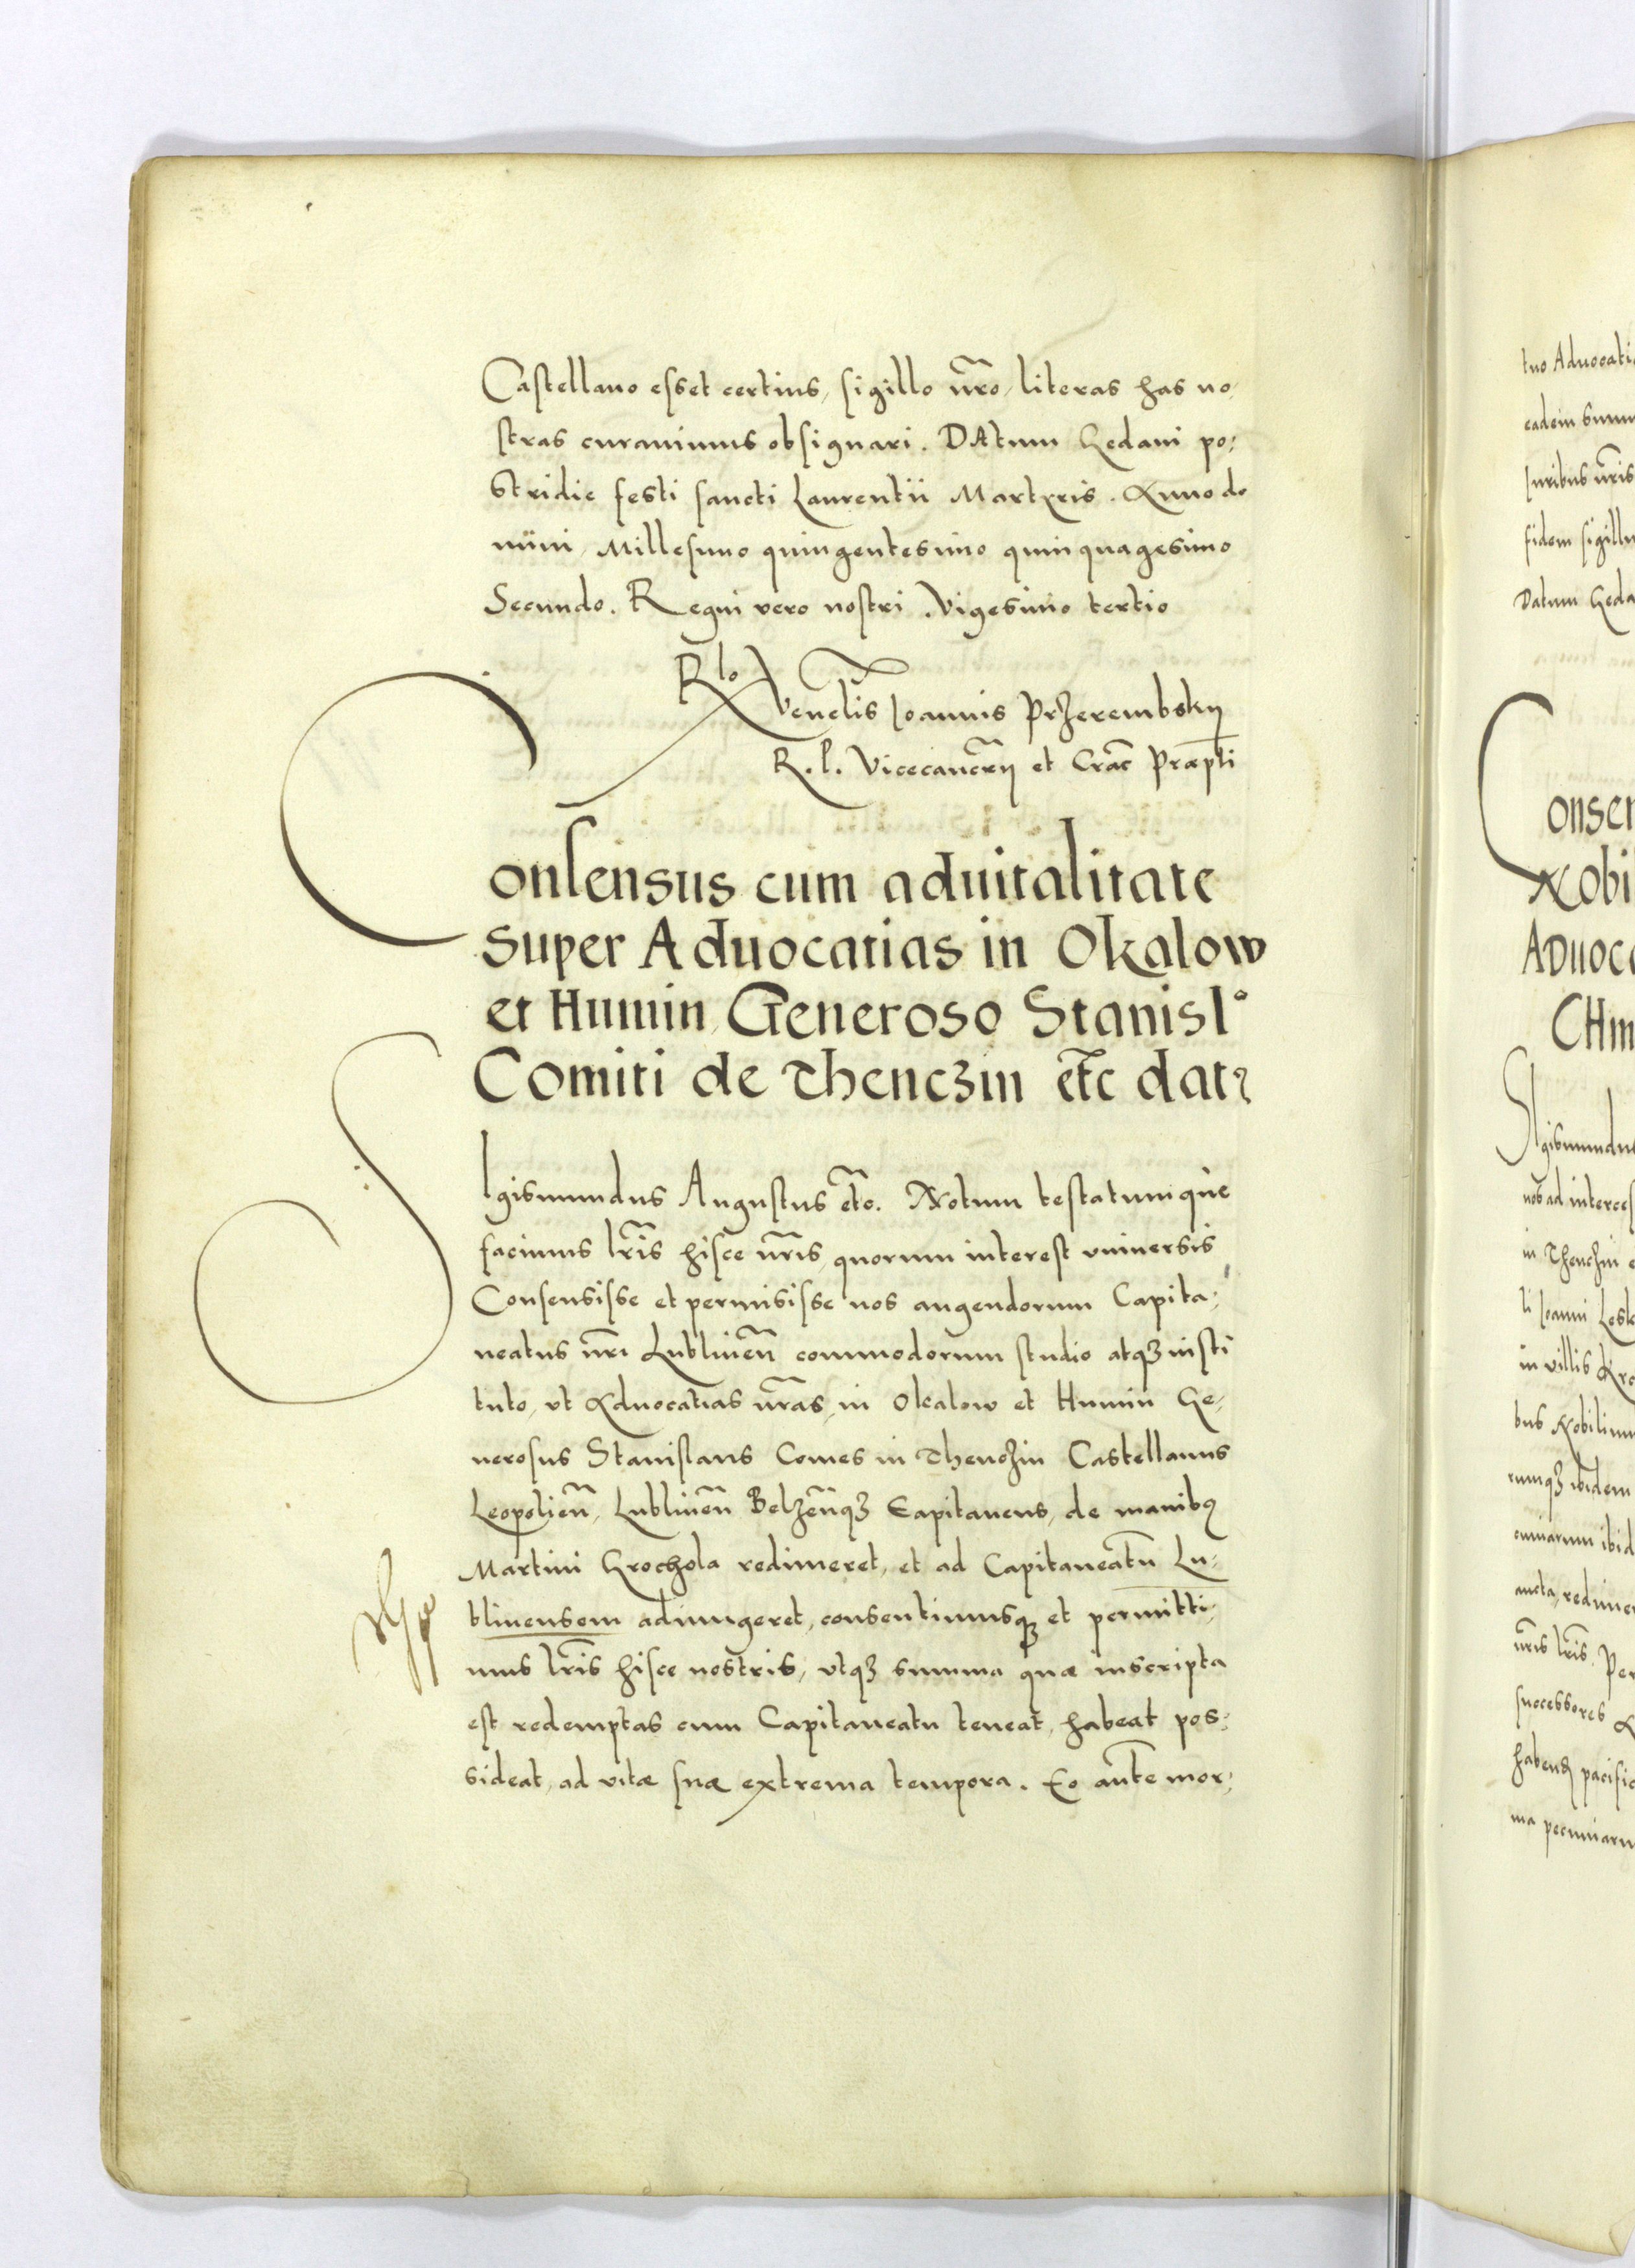 Castellano esset certius, sigillo nr̃o, literas has no,
stras curavimus obsignari. DAtum Gedani po:
stridie festi sancti Laurentii Martyris. Anno do
mini, Millesimo quingentesimo quinquagesimo
Secundo. Regni vero nostri. Vigesimo tertio
Rlo
Venelis Ioannis Przerembskij
R. P. Vicecancrij et Crac̃ Praepti
Consensus cum aduitalitate
super Aduocatias in Okalow
et Humin, Generoso Stanislo
Comiti de Thenczin etc̃ dat
SIgismundus Augustus etc̃. Notum testatumque
facimus lr̃is hisce nr̃is, quorum interest vniversis
Consensisse et permisisse nos augendorum Capita:
neatus nr̃i Lublineñ commodorum studio atqz insti
tuto, vt Aduocatias nr̃as, in Okalow et Humin Ge,
nerosus Stanislaus Comes in Thenczin Castellanus
Leopolieñ, Lublineñ Belzeñqz Capitaneus, de manibq
Martini Grochola redimeret, et ad Capitaneatũ Lu,
blinensem adiungeret, consentimusqz et permitti,
mus lr̃is hisce nostris, vtqz summa quæ inscripta
est redemptas cum Capitaneatu teneat, habeat pos:
sideat, ad vitæ suæ extrema tempora. Eo aut̃e mor:
tuo Aduocati
eadem sum
Iuribus nr̃is
fidem sigillu
Datum Geda
Conse
Nobi
ADuoc
CHm
SIgismundu
nob ad interces
in Thenczin
li Ioanni Lesk
in villis
bus Nobilium
rumqz ibidem
ibid
redime
nr̃is lr̃is. Per
successores
pacific
ma pecuniaru